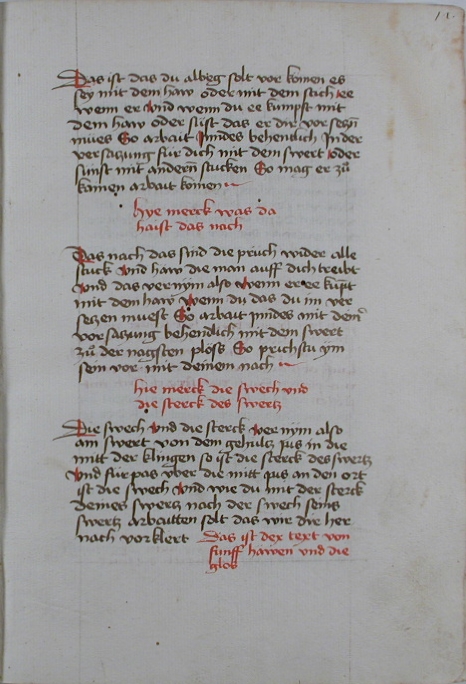 Das ist das du albeg solt vor komen es
sey mit dem haw oder mit dem stich ee
wenn er Vnd wenn du ee kumpst mit
dem haw oder süst das er dir vor seczñ
mues So arbait Inndes behendlich Inder
versaczung für dich mit dem swert oder
sunst mit anderñ stucken So mag er zů
kainer arbait komen
hye merck was da
haist das nach
Das nach das sind die pruch wider alle
stuck Vnd haw die man auff dich treibt
Vnd das vernym also Wenn er ee kūpt
mit dem haw Wenn du das du im ver
seczen muest So arbait inndes mit dem
vorsaczung behendlich mit dem swert
zů der nagsten plöss So prichstu ym
sein vor mit deinem nach
hie merck die swech vnd
die sterck des swertz
Die swech Vnd die sterck Vernym also
am swert von dem gehultz pis in die
mitt der klingen so ist die sterck des swertz
Vnd fürpas vber die mitt pis an den ort
ist die swech Vnd wie du mit der sterck
deines swertz nach der swech seins
swertz arbaitten solt das wir die her
nach vorklert Das ist der text von
funff hawen vnd die
glos